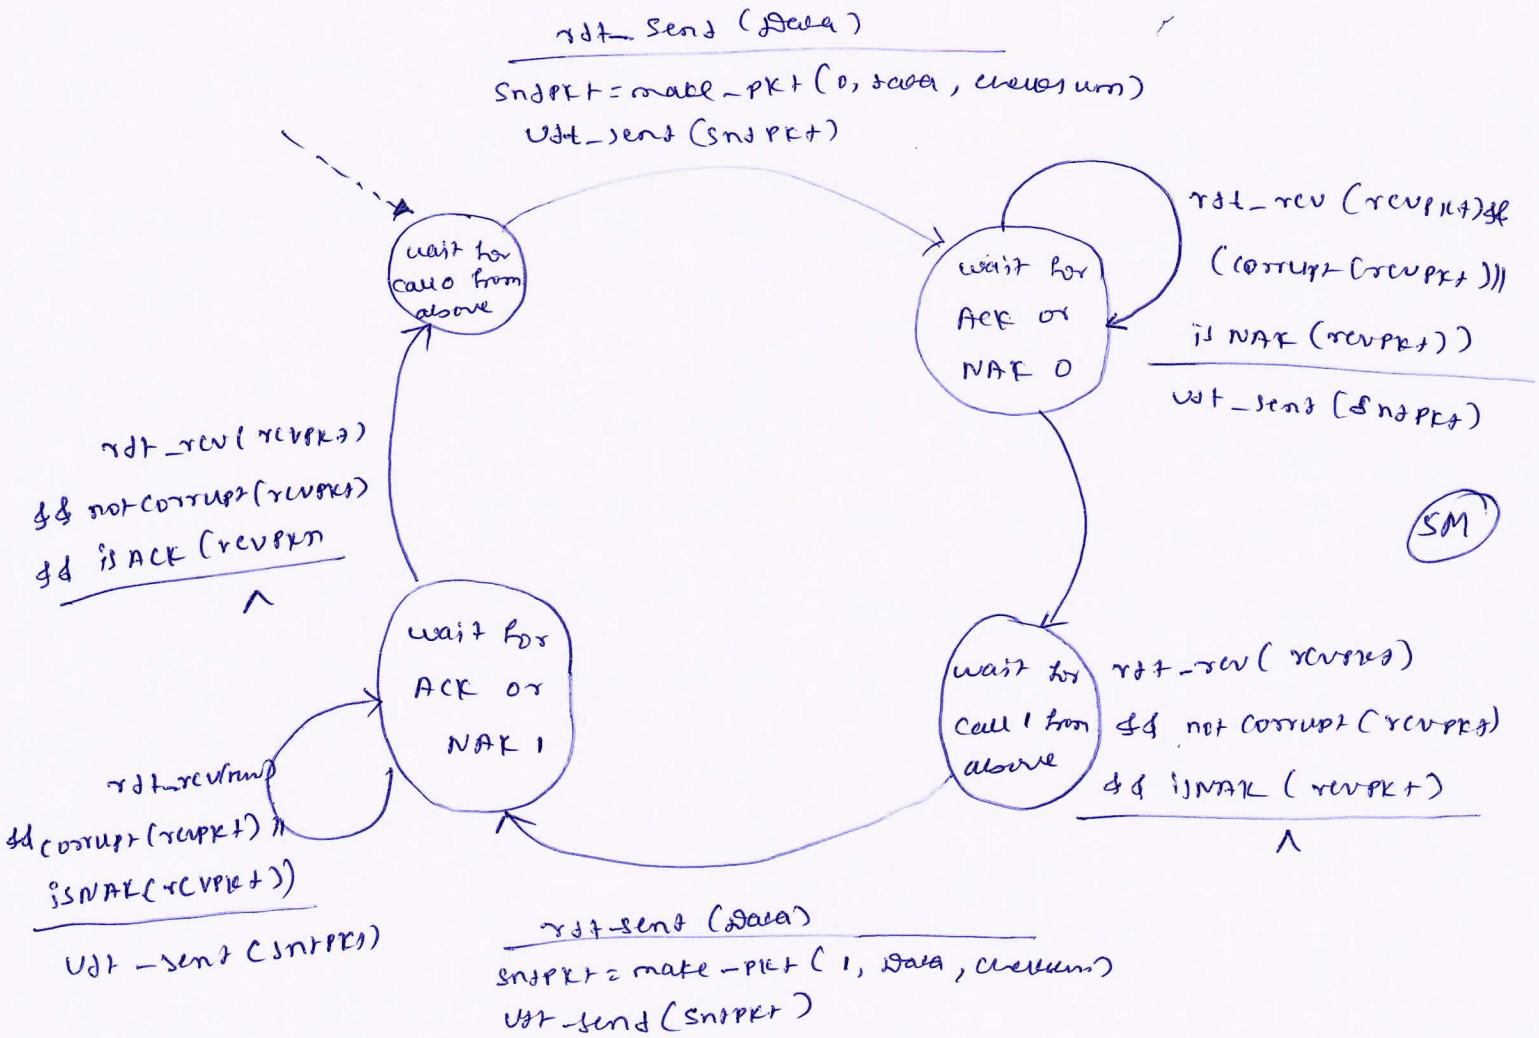 rdt_send (Data)
sndpkt = make_pkt (0, data, checksum)
udt_send (sndpkt)
wait for
call 0 from
above
wait for
ACK or
NAK 0
rdt_rcv (rcvpkt) &&
(corrupt (rcvpkt) ||
is NAK (rcvpkt))
udt_send (sndpkt)
rdt_rcv (rcvpkt)
&& not corrupt (rcvpkt)
&& is ACK (rcvpkt)
Λ
5M
wait for
ACK or
NAK 1
wait for
call 1 from
above
rdt_rcv (rcvpkt)
&& not corrupt (rcvpkt)
&& isNAK (rcvpkt)
Λ
&& corrupt (rcvpkt) ||
isNAK (rcvpkt))
udt_send (sndpkt)
rdt_send (Data)
sndpkt = make_pkt (1, Data, checksum)
udt_send (sndpkt)